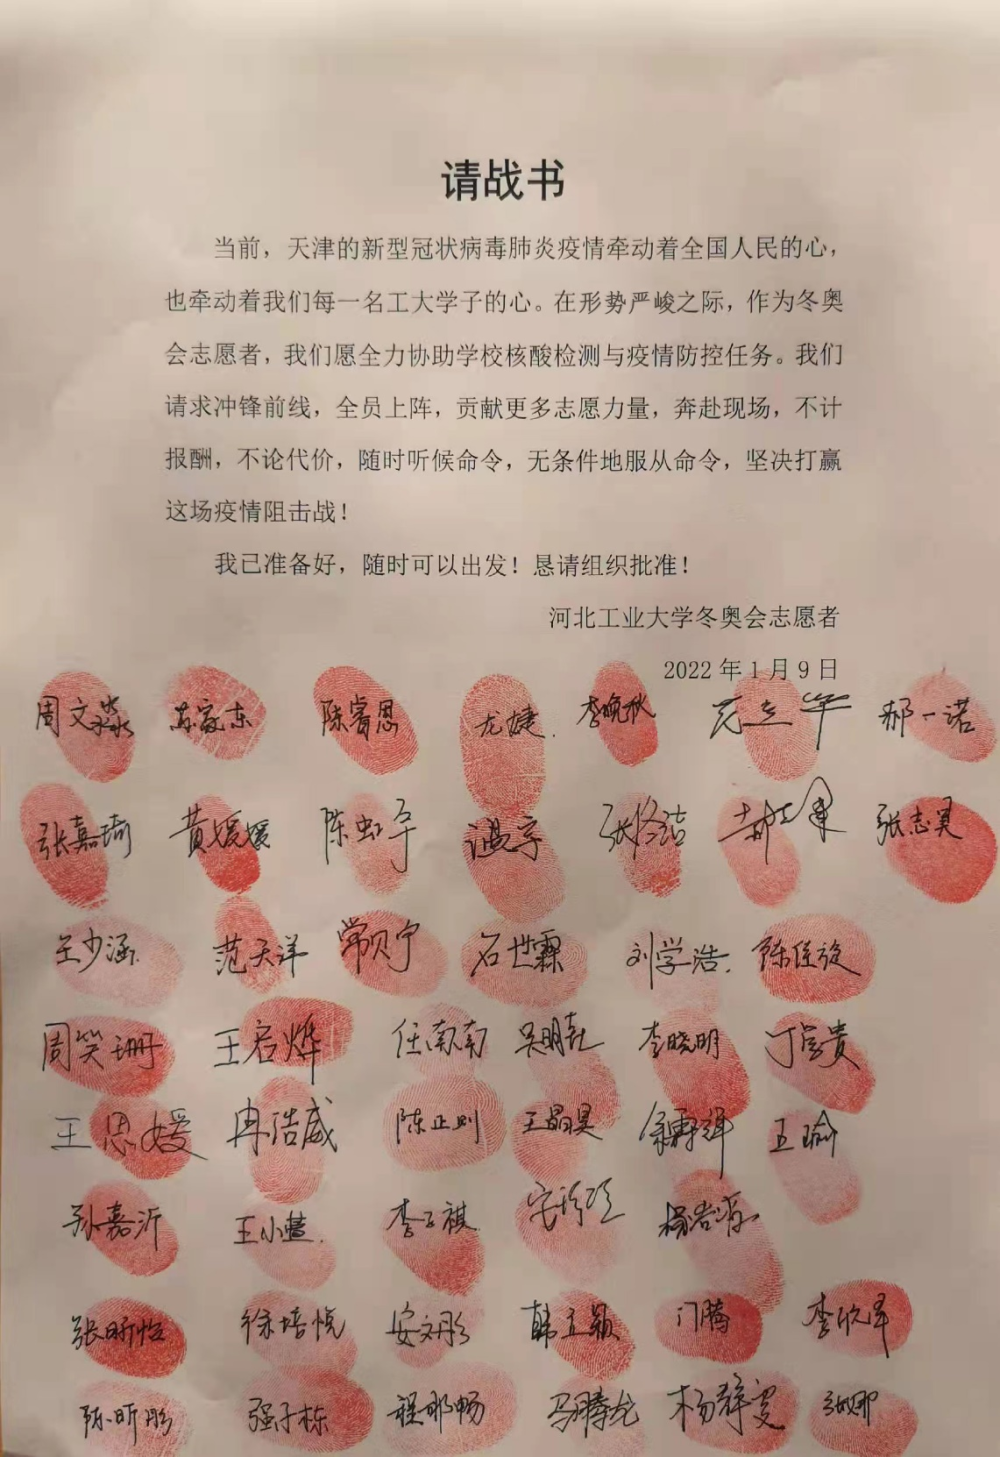 请战书
当前，天津的新型冠状病毒肺炎疫情牵动着全国人民的心，
也牵动着我们每一名工大学子的心。在形势严峻之际，作为冬奥
会志愿者，我们愿全力协助学校核酸检测与疫情防控任务。我们
请求冲锋前线，全员上阵，贡献更多志愿力量，奔赴现场，不计
报酬，不论代价，随时听候命令，无条件地服从命令，坚决打赢
这场疫情阻击战！
我已准备好，随时可以出发！恳请组织批准！
河北工业大学冬奥会志愿者
2022 年 1 月 9 日
周文淼 苏家东 陈睿恩 尤婕. 李晚秋 郝一诺
张嘉琦 黄媛媛 陈虹宇 温宇 张志昊
王少涵 范天洋 常贝宁 石世霖 刘学浩. 陈佳旋
周笑珊 王启烨 任南南 吴明春 李晓明
王思媛 冉浩威 陈正则 王晶昊 王瑜
孙嘉沂 王小慧. 李子祺
张昕怡 徐培悦 安文彤 韩立颖 门腾 李欣泽
陈昕彤 强子栋 程郁畅 马腾龙 杨静雯 张娜